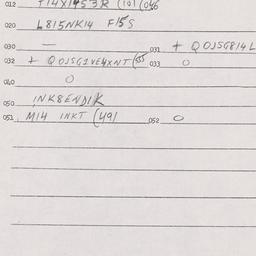 012 T14X1453R (10) (046
020 L815NK14 F15S
030 — 031 + QOJSG814L
032 + QOJSG1VE4XNT (55 033 O
040 O
050 INK8ENDIK
051 M14 INKT (491 052 O